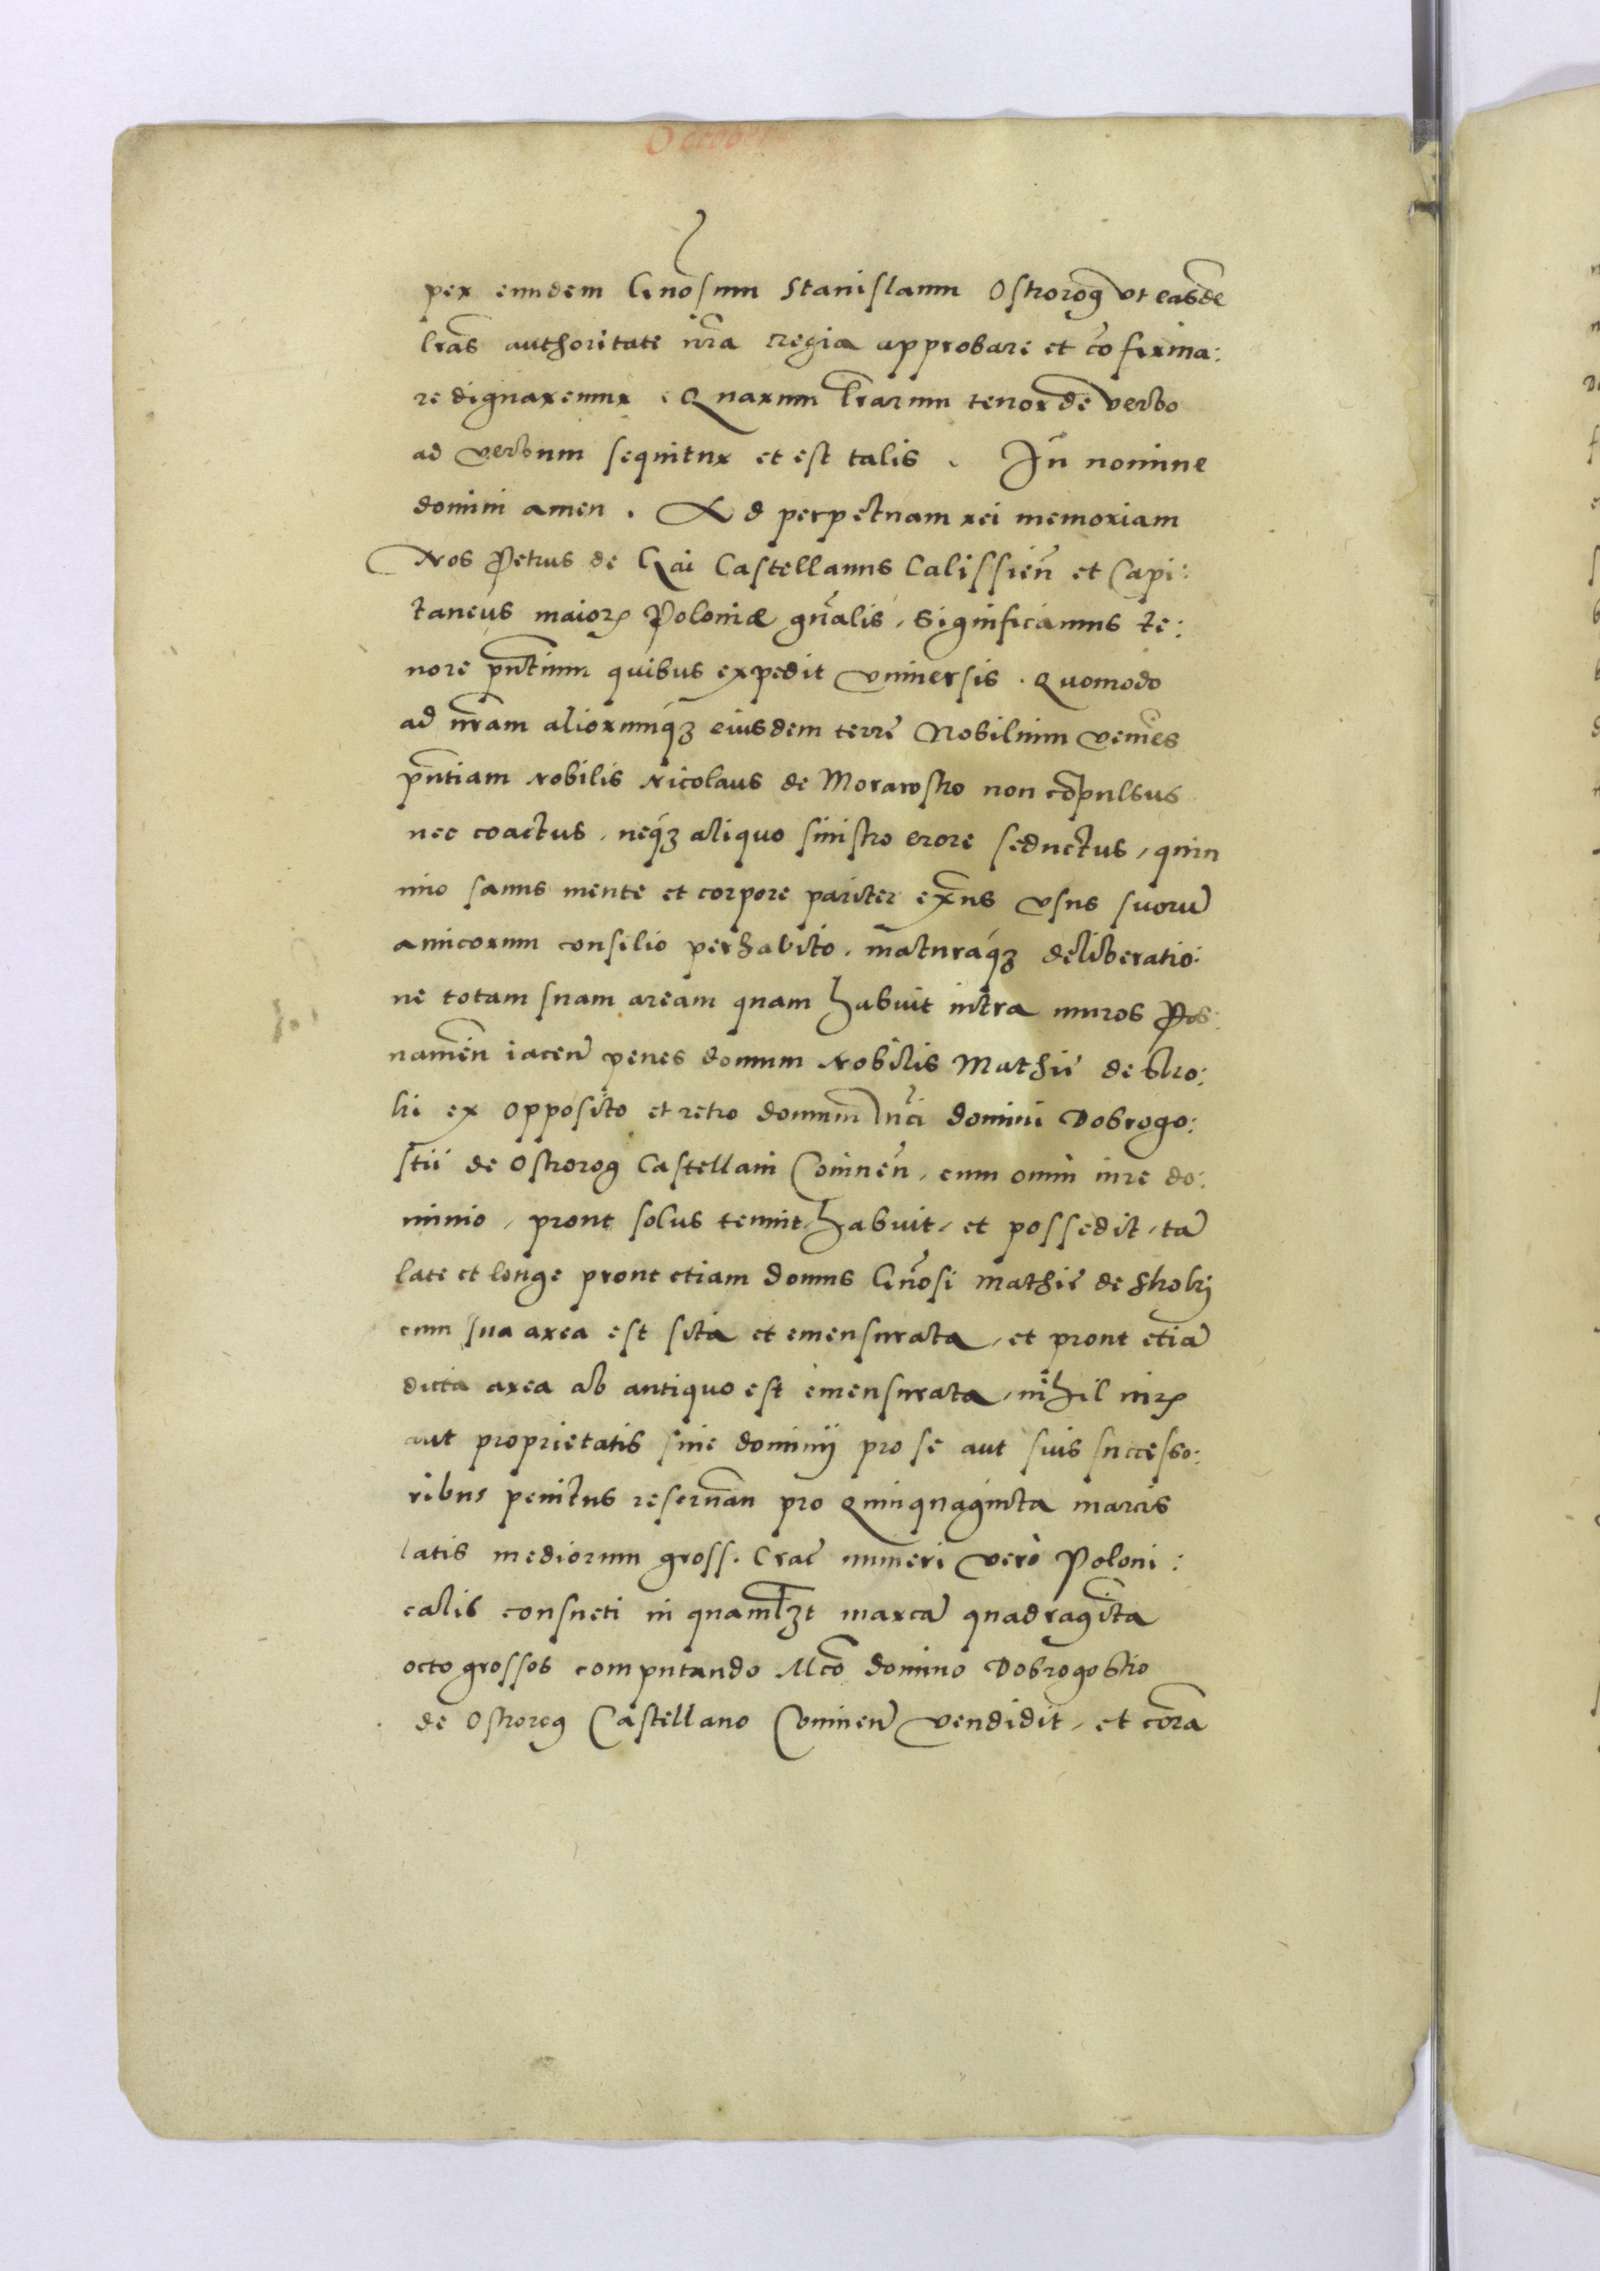 per eundem Gnosum Stanislaum Ostrorog ut easde
lras authoritate nra regia approbare et cofirma:
re dignaremur. Quarum lrarum tenor de verbo
ad verbum sequitur et est talis. In nomine
domini amen. Ad perpetuam rei memoriam
Nos Petrus de Castellanus Calissien et Capi:
taneus maior Poloniæ gnalis, Significamus te:
nore pntium quibus expedit universis. Quomodo
ad nram aliorumq3 eiusdem terre Nobilium venies
pntiam Nobilis Nicolaus de Morawsko non copulsus
nec coactus, neq3 aliquo sinistro erore seductus, quin
imo sanus mente et corpore pariter exns usus suoru
amicorum consilio perhabito, maturaq3 deliberatio:
ne totam suam aream quam habuit intra muros Pos:
namen iacen penes domum Nobilis Mathie de Sko:
ki ex opposito et retro domum Mci domini Dobrogo:
stii de Ostrorog Castellani Cominen, cum omni iure do:
minio, prout solus tenuit habuit, et possedit, ta
late et longe prout etiam domus Gnosi Mathie de Skokij
cum sua area est sita et emensurata, et prout etia
dicta area ab antiquo est emensurata, nihil iur
aut proprietatis sine dominij pro se aut suis successo:
ribus penitus reseruan pro Quinquaginta marcis
latis mediorum gross. Crac numeri vero Poloni:
calis consueti in quaml3t marca quadraginta
octo grossos computando Mco domino Dobrogostio
de Ostrorog Castellano Cominen vendidit, et cora